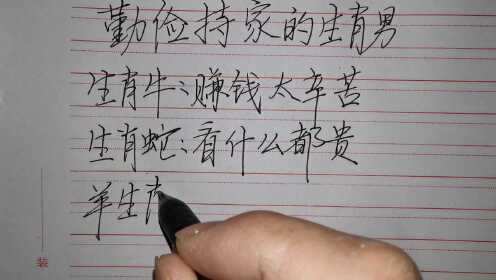 勤俭持家的生肖男
生肖牛:赚钱太辛苦
生肖蛇:看什么都贵
羊生
装